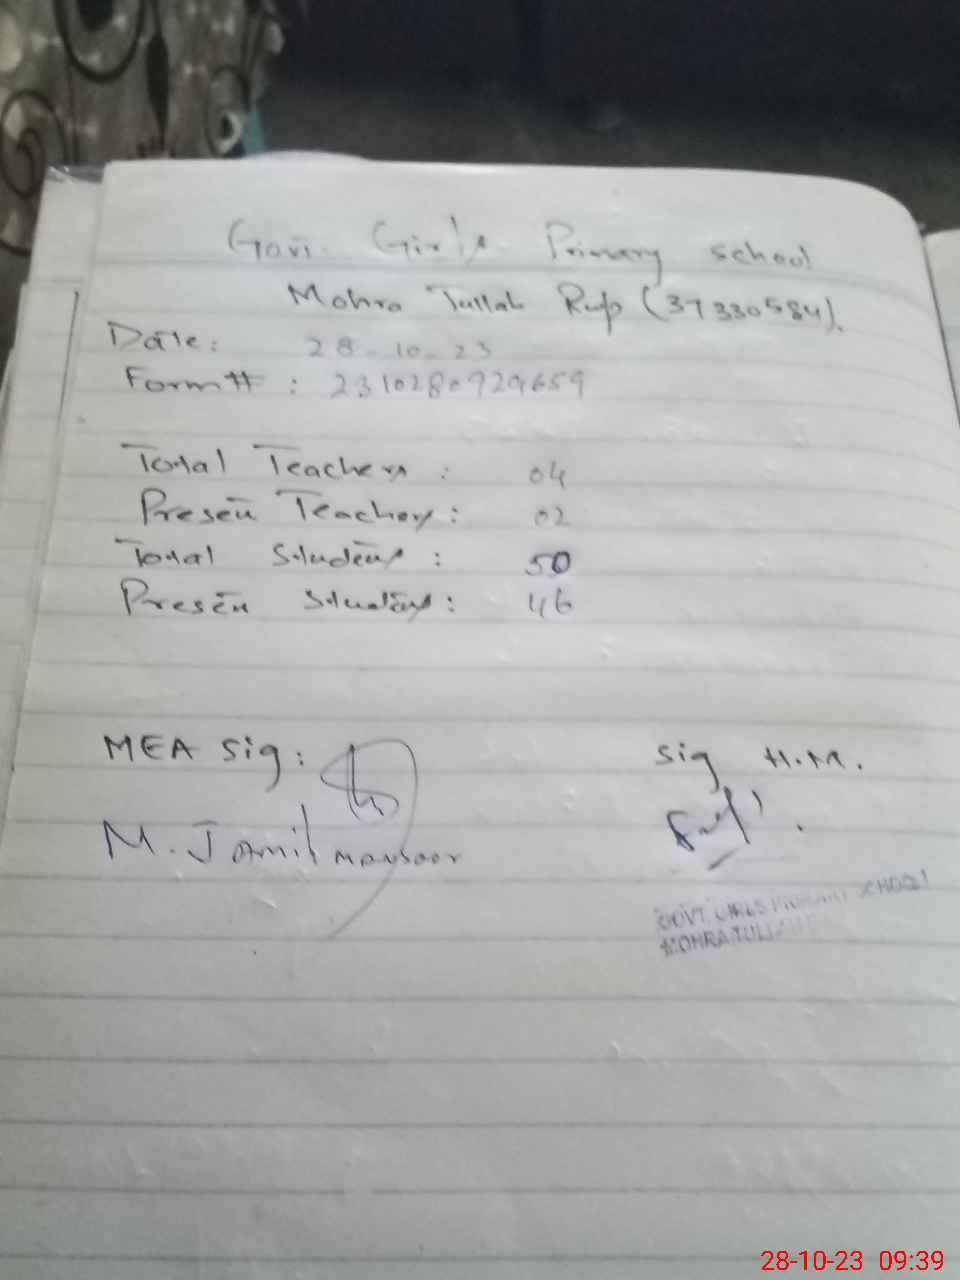 Govt. Girls Primary school
Mohra Tullah Rup (37330584).
Date: 28-10-23
Form # : 2310280729659
Total Teachers : 04
Present Teachers : 02
Total Students : 50
Present Students : 46
MEA Sig:
Sig H.M.
M. Jamil mansoor
GOVT. GIRLS PRIMARY SCHOOL
MOHRA TULLAH
28-10-23 09:39